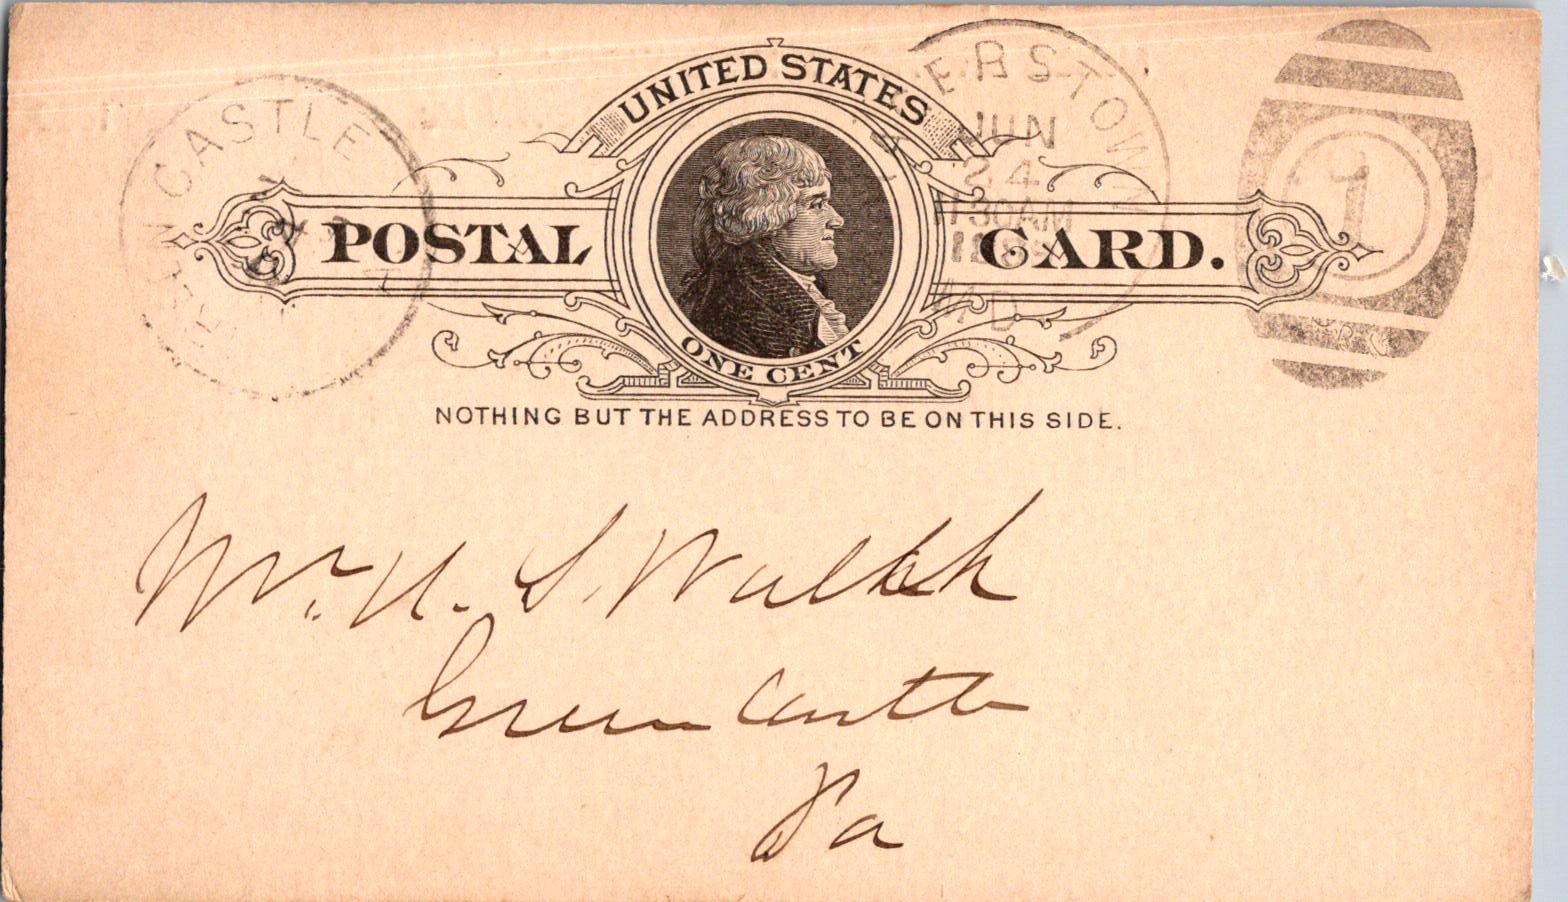 UNITED STATES
POSTAL CARD.
ONE CENT
NOTHING BUT THE ADDRESS TO BE ON THIS SIDE.
CASTLE
ERSTOW
JUN
24
30AM
1
Mr. H. S. Walck
Greencastle
Pa